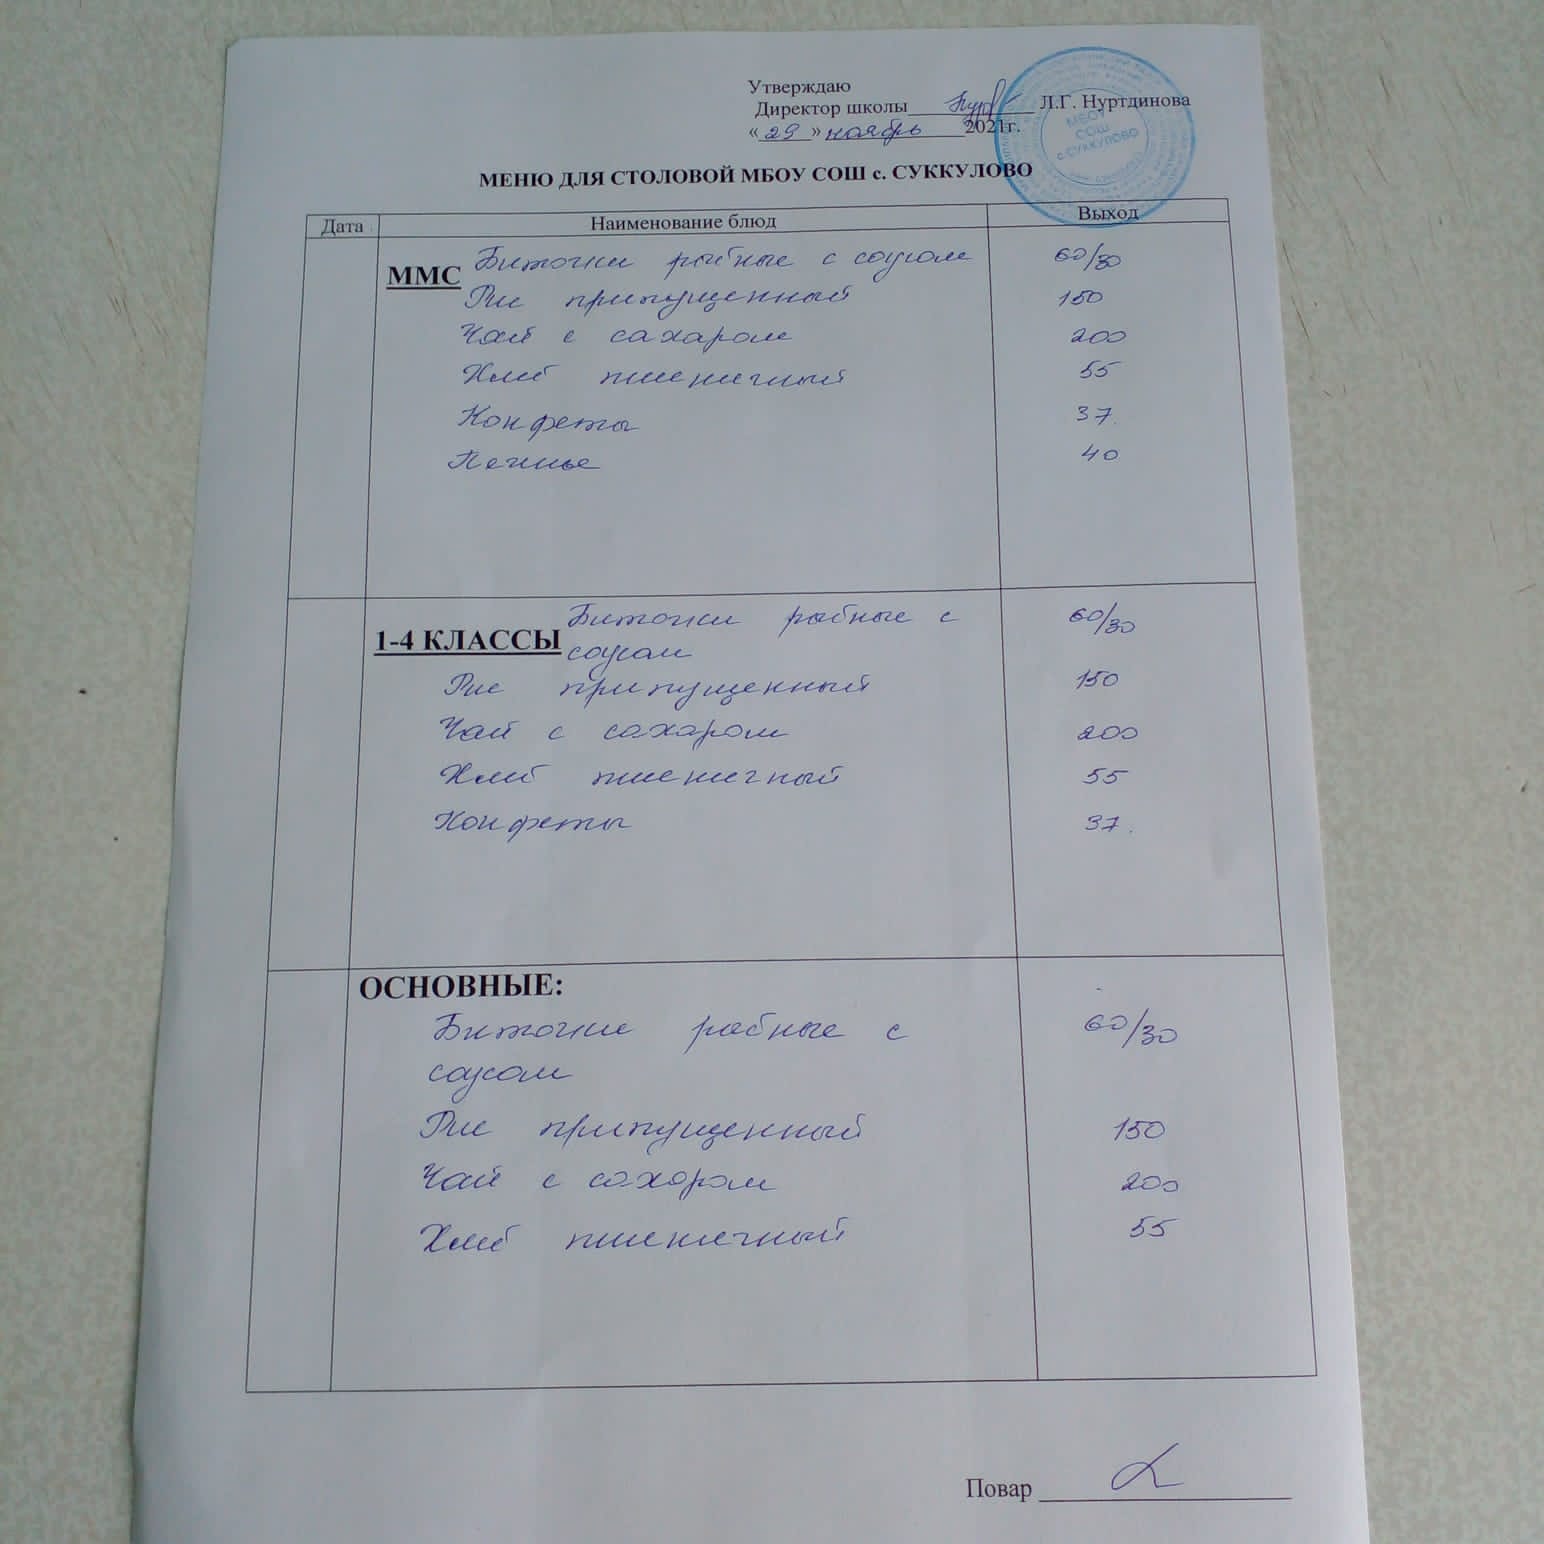 Утверждаю
Директор школы Л.Г. Нуртдинова
«29» ноябрь 2021г.
МБОУ
СОШ
с.СУККУЛОВО
МЕНЮ ДЛЯ СТОЛОВОЙ МБОУ СОШ с. СУККУЛОВО
Дата Наименование блюд Выход
ММС Биточки рыбные с соусом 60/30
Рис припущенный 150
Чай с сахаром 200
Хлеб пшеничный 55
Конфеты 37.
Печенье 40
1-4 КЛАССЫ Биточки рыбные с 60/30
соусом
Рис припущенный 150
Чай с сахаром 200
Хлеб пшеничный 55
Конфеты 37.
ОСНОВНЫЕ:
Биточки рыбные с 60/30
соусом
Рис припущенный 150
Чай с сахаром 200
Хлеб пшеничный 55
Повар